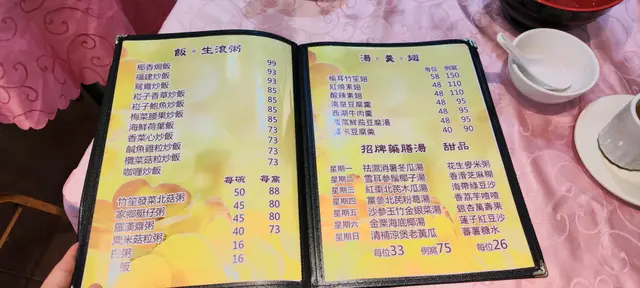 飯。生滾粥
椰香焗飯 99
福建炒飯 93
鴛鴦炒飯 93
崧子香草炒飯 85
崧子鮑魚炒飯 85
梅菜腰果炒飯 85
海鮮荷葉飯 85
香菜心炒飯 73
鹹魚雞粒炒飯 73
欖菜菇粒炒飯 73
咖喱炒飯 73
每碗 每窩
竹笙發菜北菇粥 50 88
家鄉艇仔粥 45 80
羅漢齋粥 45 80
粟米菇粒粥 40 73
白粥 16
白飯 16
湯。羹。翅
每位 例窩
榆耳竹笙翅 58 150
紅燒素翅 48 110
酸辣素翅 48 110
豆腐羹 48 95
西湖牛肉羹 48 95
菜鮮茄豆腐湯 48 95
豆腐羹 40 90
招牌藥膳湯 甜品
星期一 祛濕消暑冬瓜湯 花生麥米粥
星期二 雪耳參鬚椰子湯 香滑芝麻糊
星期三 紅棗北芪木瓜湯 海帶綠豆沙
星期四 黨參北芪粉葛湯 香荔芋喳喳
星期五 沙參玉竹金銀菜湯 銀杏萬壽果
星期六 金粟海底椰湯 蓮子紅豆沙
星期日 清補涼煲老黃瓜 蕃薯糖水
每位33 例窩75 每位26